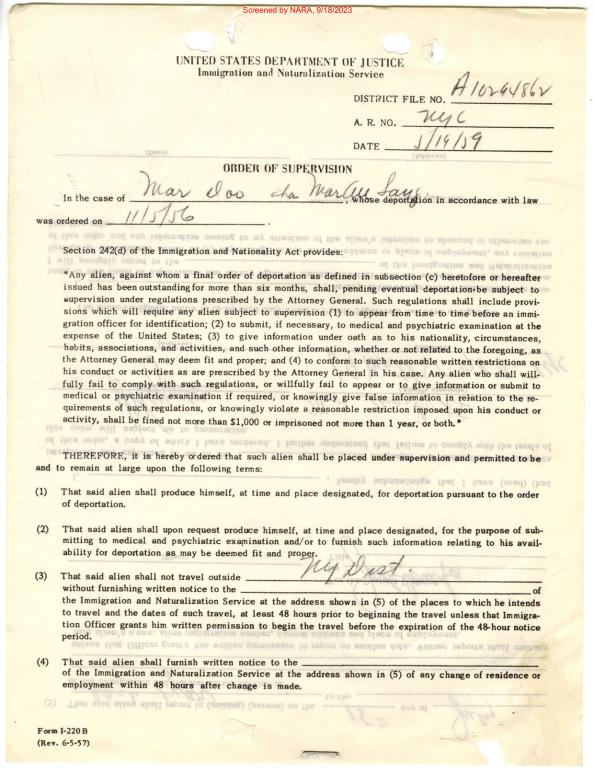 Screened by NARA, 9/18/2023
UNITED STATES DEPARTMENT OF JUSTICE
Immigration and Naturalization Service
DISTRICT FILE NO. A10294862
A. R. NO. NYC
DATE 5/19/59
ORDER OF SUPERVISION
In the case of Mar Doo aka Mar, whose deportation in accordance with law
was ordered on 11/5/56.
Section 242(d) of the Immigration and Nationality Act provides:
"Any alien, against whom a final order of deportation as defined in subsection (c) heretofore or hereafter
issued has been outstanding for more than six months, shall, pending eventual deportation·be subject to
supervision under regulations prescribed by the Attorney General. Such regulations shall include provi-
sions which will require any alien subject to supervision (1) to appear from time to time before an immi-
gration officer for identification; (2) to submit, if necessary, to medical and psychiatric examination at the
expense of the United States; (3) to give information under oath as to his nationality, circumstances,
habits, associations, and activities, and such other information, whether or not related to the foregoing, as
the Attorney General may deem fit and proper; and (4) to conform to such reasonable written restrictions on
his conduct or activities as are prescribed by the Attorney General in his case. Any alien who shall will-
fully fail to comply with such regulations, or willfully fail to appear or to give information or submit to
medical or psychiatric examination if required, or knowingly give false information in relation to the re-
quirements of such regulations, or knowingly violate a reasonable restriction imposed upon his conduct or
activity, shall be fined not more than $1,000 or imprisoned not more than 1 year, or both."
THEREFORE, it is hereby ordered that such alien shall be placed under supervision and permitted to be
and to remain at large upon the following terms:
(1) That said alien shall produce himself, at time and place designated, for deportation pursuant to the order
of deportation.
(2) That said alien shall upon request produce himself, at time and place designated, for the purpose of sub-
mitting to medical and psychiatric examination and/or to furnish such information relating to his avail-
ability for deportation as may be deemed fit and proper.
(3) That said alien shall not travel outside NY Dist.
without furnishing written notice to the of
the Immigration and Naturalization Service at the address shown in (5) of the places to which he intends
to travel and the dates of such travel, at least 48 hours prior to beginning the travel unless that Immigra-
tion Officer grants him written permission to begin the travel before the expiration of the 48-hour notice
period.
(4) That said alien shall furnish written notice to the
of the Immigration and Naturalization Service at the address shown in (5) of any change of residence or
employment within 48 hours after change is made.
Form I-220 B
(Rev. 6-5-57)